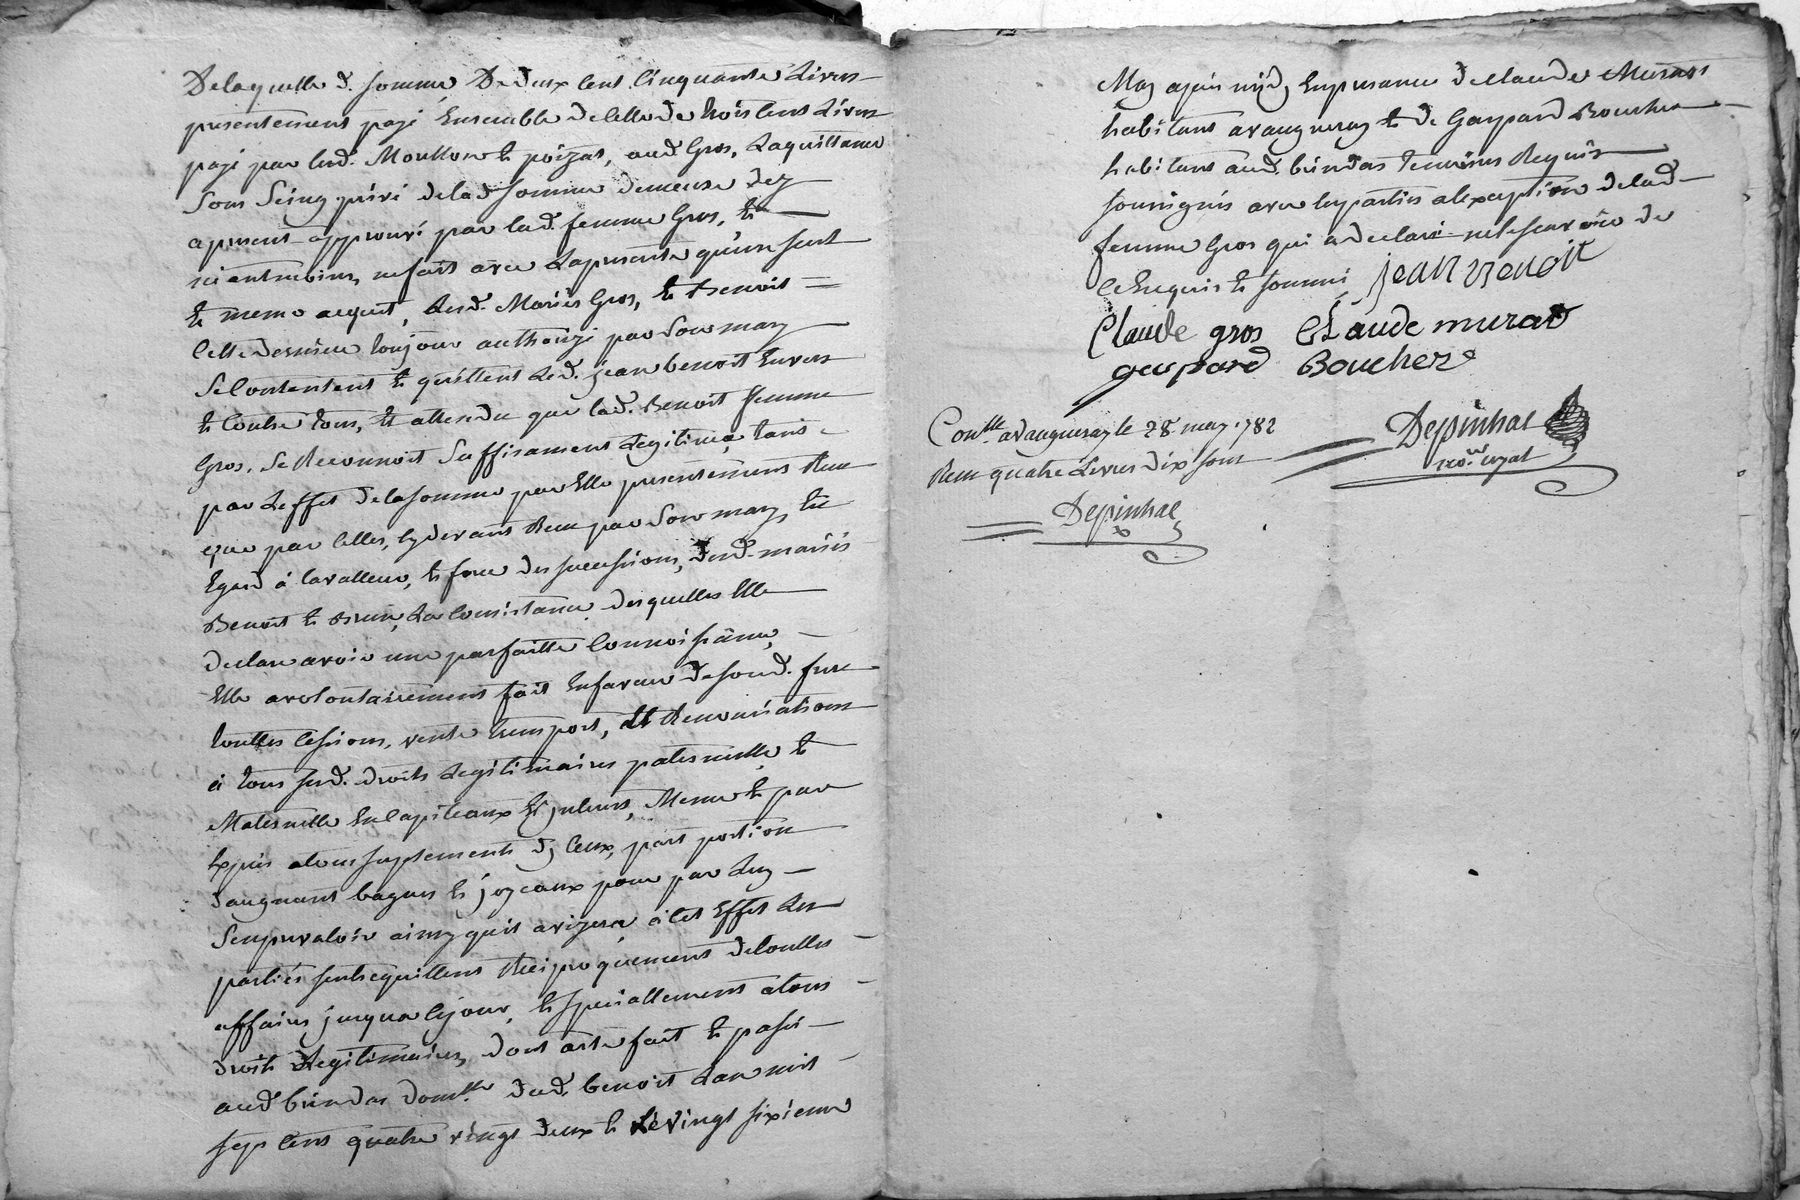 Delaquelle d. somme De deux cent Cinquante Livres
presentement payé Ensemble de Celle de trois Cens Livres
payé par lesd. Moullon et poizat, aud. Gros, Laquittance
Sous Seing privé delad. somme demeure dez
apresent approuvé par lad. femme Gros, et
ne fait avec Lapresente qu'un seul
et meme acquit, lesd. Mariés Gros, et Benoit
Cette derniere toujour authorizé par Son mary
Se Contentent et quittent Led. jean benoit Envers
et Contre tous, et attendu que lad. Benoit femme
Gros, Se Reconnoit Suffisament Legitimeé, tant
par Leffet delasomme par Elle presentement Reçue
que par Celles, cydevant Reçu par Son mary, Eu
Egard á lavalleur, et force des successions, desd. mariés
Benoit et Brun, La Consistance desquelles Elle
declare avoir une parfaitte Connoissance,
Elle avolontairement fait Enfaveur desond. frere
touttes Cessions, vente transport, Et Renonciations
á tous sesd. droits Legitimaires paternelle et
Maternelle En Capiteaux Et jnterets, Meme et par
Exprés atous suplements dj Ceux, part portion
daugment bagues et joyeaux pour par Luy
Senprevaloir ainsy quil avizera á Cet Effet Les
parties sentrequittent Reciproquement detouttes
affaires jusqua Cejour, et speciallement atous
droits Legitimaires, dont acte fait et passé
aud. brindas domlle dud. benoit Lan mil
sept Cent quatre vingt deux et Levingt sixieme
May apres midy, Enpresence de Claude Murat
habitant avaugneray et de Gaspard Boucher
habitant aud. brindas temoins Requis
soussignés avec lesparties alexception delad.
femme Gros qui adeclaré nelescavoir de
Ce Enquis et sommé jean benoit
Claude gros Claude murat
gaspard Boucher
Conlle. avaugneray le 28. may. 1782
Depinhac
Recu quatre Livres dix sous
nore. royal
Depinhac